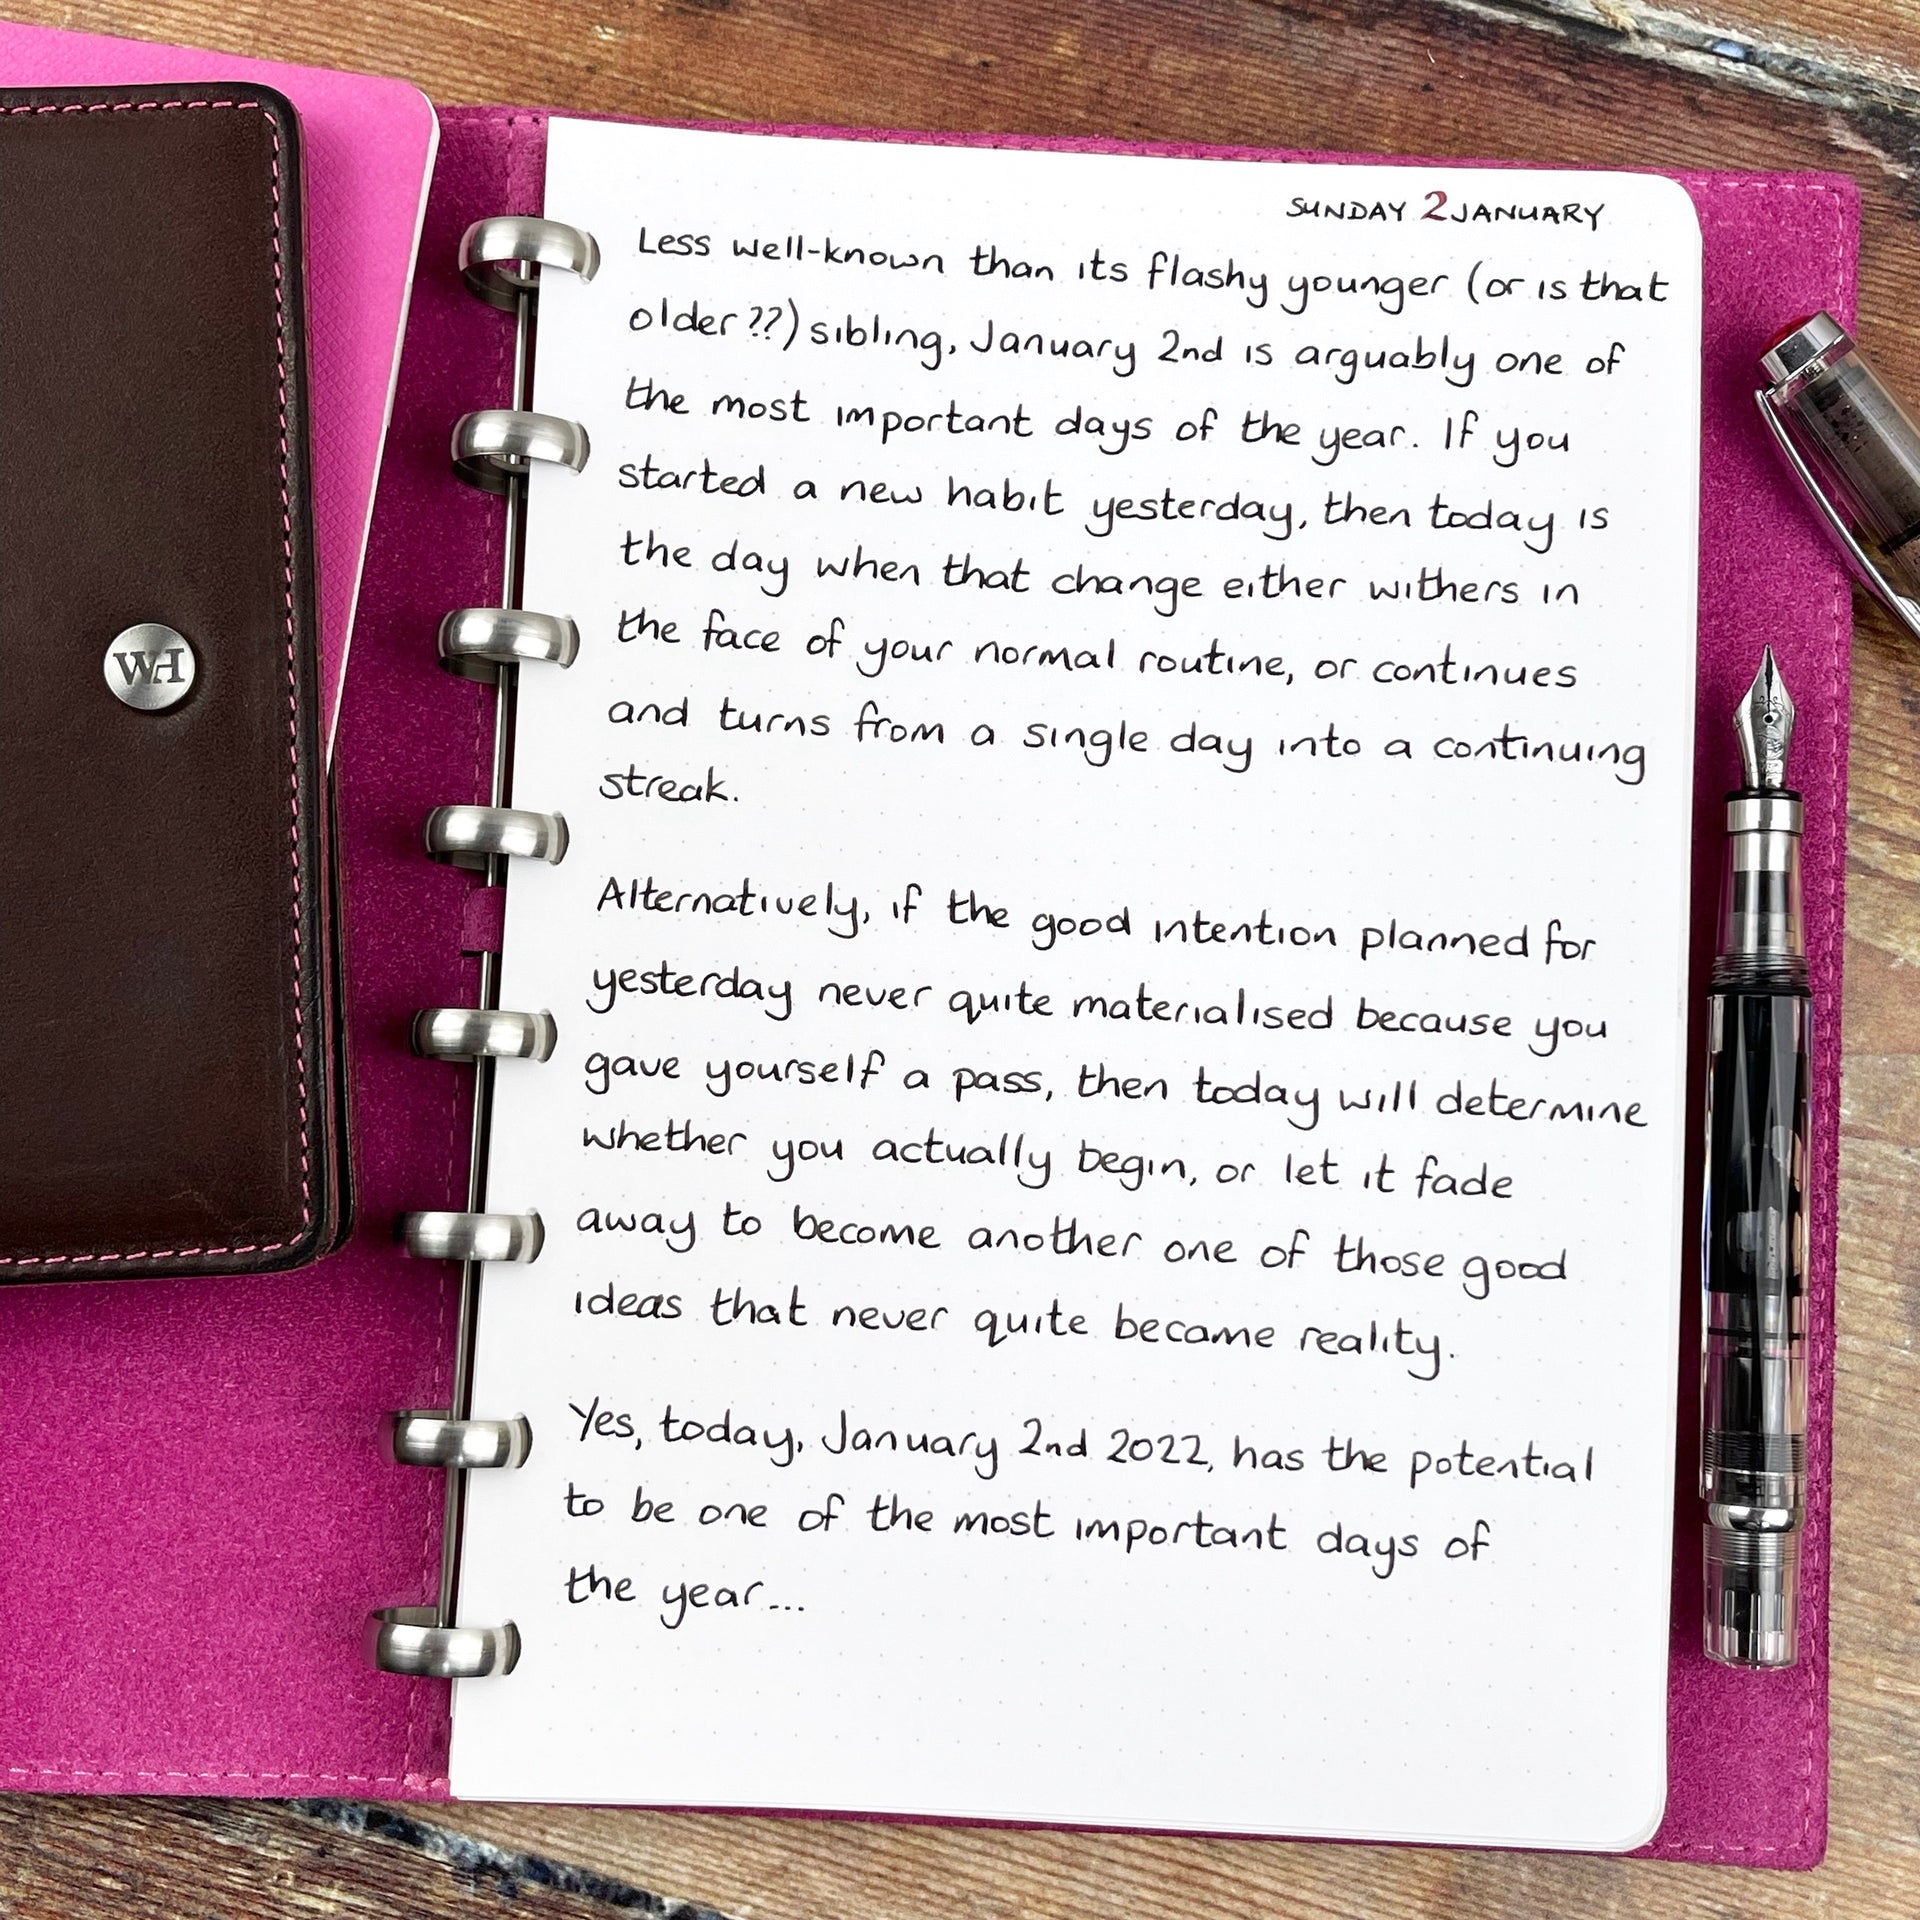 WH
SUNDAY 2 JANUARY
Less well-known than its flashy younger (or is that
older??) sibling, January 2nd is arguably one of
the most important days of the year. If you
started a new habit yesterday, then today is
the day when that change either withers in
the face of your normal routine, or continues
and turns from a single day into a continuing
streak.
Alternatively, if the good intention planned for
yesterday never quite materialised because you
gave yourself a pass, then today will determine
whether you actually begin, or let it fade
away to become another one of those good
ideas that never quite became reality.
Yes, today, January 2nd 2022, has the potential
to be one of the most important days of
the year...